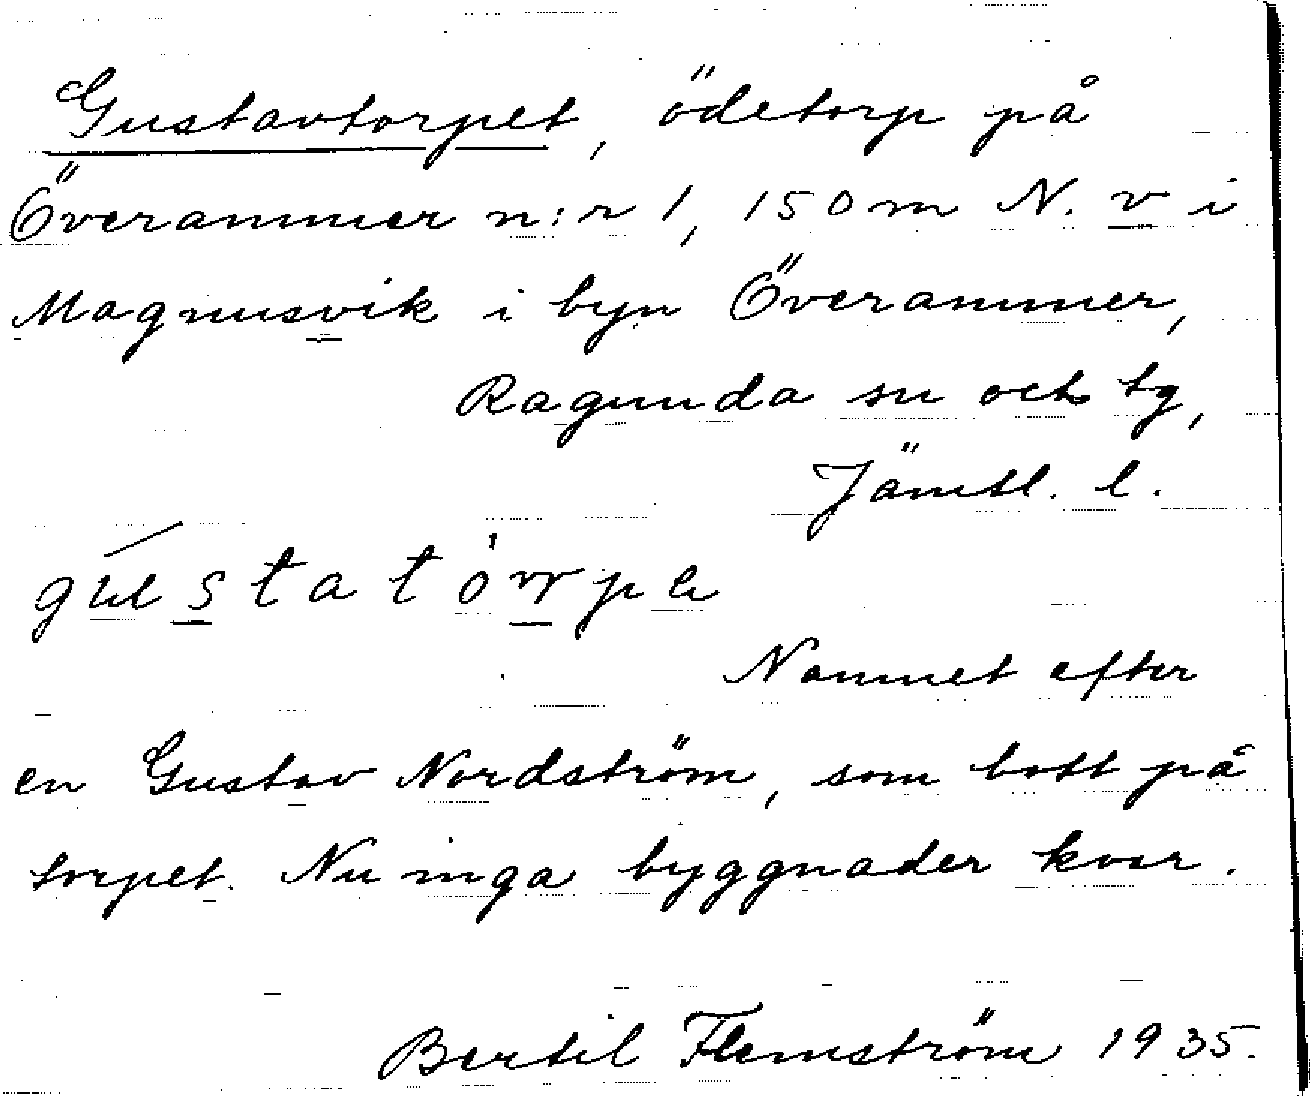 Gustavtorpet, ödetorp på
Överammer n:r 1, 150 m N. v i
Magnusvik i byn Överammer,
Ragunda sn och tg,
Jämtl. l.
gústatórpe
Namnet efter
en Gustav Nordström, som bott på
torpet. Nu inga byggnader kvar.
Bertil Flemström 1935.